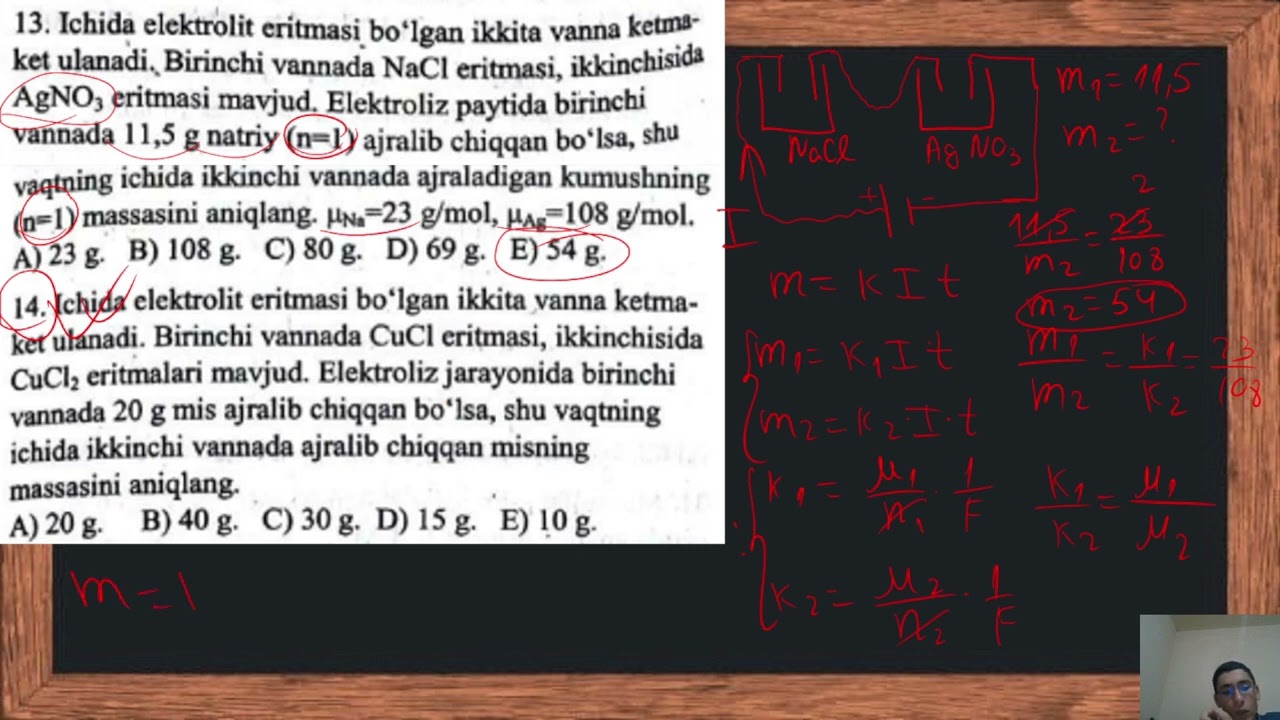 13. Ichida elektrolit eritmasi bo‘lgan ikkita vanna ketma-
ket ulanadi. Birinchi vannada NaCl eritmasi, ikkinchisida
AgNO₃ eritmasi mavjud. Elektroliz paytida birinchi
vannada 11,5 g natriy (n=1) ajralib chiqqan bo‘lsa, shu
vaqtning ichida ikkinchi vannada ajraladigan kumushning
(n=1) massasini aniqlang. μNa=23 g/mol, μAg=108 g/mol.
A) 23 g. B) 108 g. C) 80 g. D) 69 g. E) 54 g.
14. Ichida elektrolit eritmasi bo‘lgan ikkita vanna ketma-
ket ulanadi. Birinchi vannada CuCl eritmasi, ikkinchisida
CuCl₂ eritmalari mavjud. Elektroliz jarayonida birinchi
vannada 20 g mis ajralib chiqqan bo‘lsa, shu vaqtning
ichida ikkinchi vannada ajralib chiqqan misning
massasini aniqlang.
A) 20 g. B) 40 g. C) 30 g. D) 15 g. E) 10 g.
m = 1
NaCl
AgNO₃
+ −
I
m = K I t
m₁ = K₁ I t
m₂ = K₂ · I · t
K₁ = μ₁/n₁ · 1/F
K₂ = μ₂/n₂ · 1/F
m₁ = 11,5
m₂ = ?
2
11,5/m₂ = 23/108
m₂ = 54
m₁/m₂ = K₁/K₂ = 23/108
K₁/K₂ = μ₁/μ₂